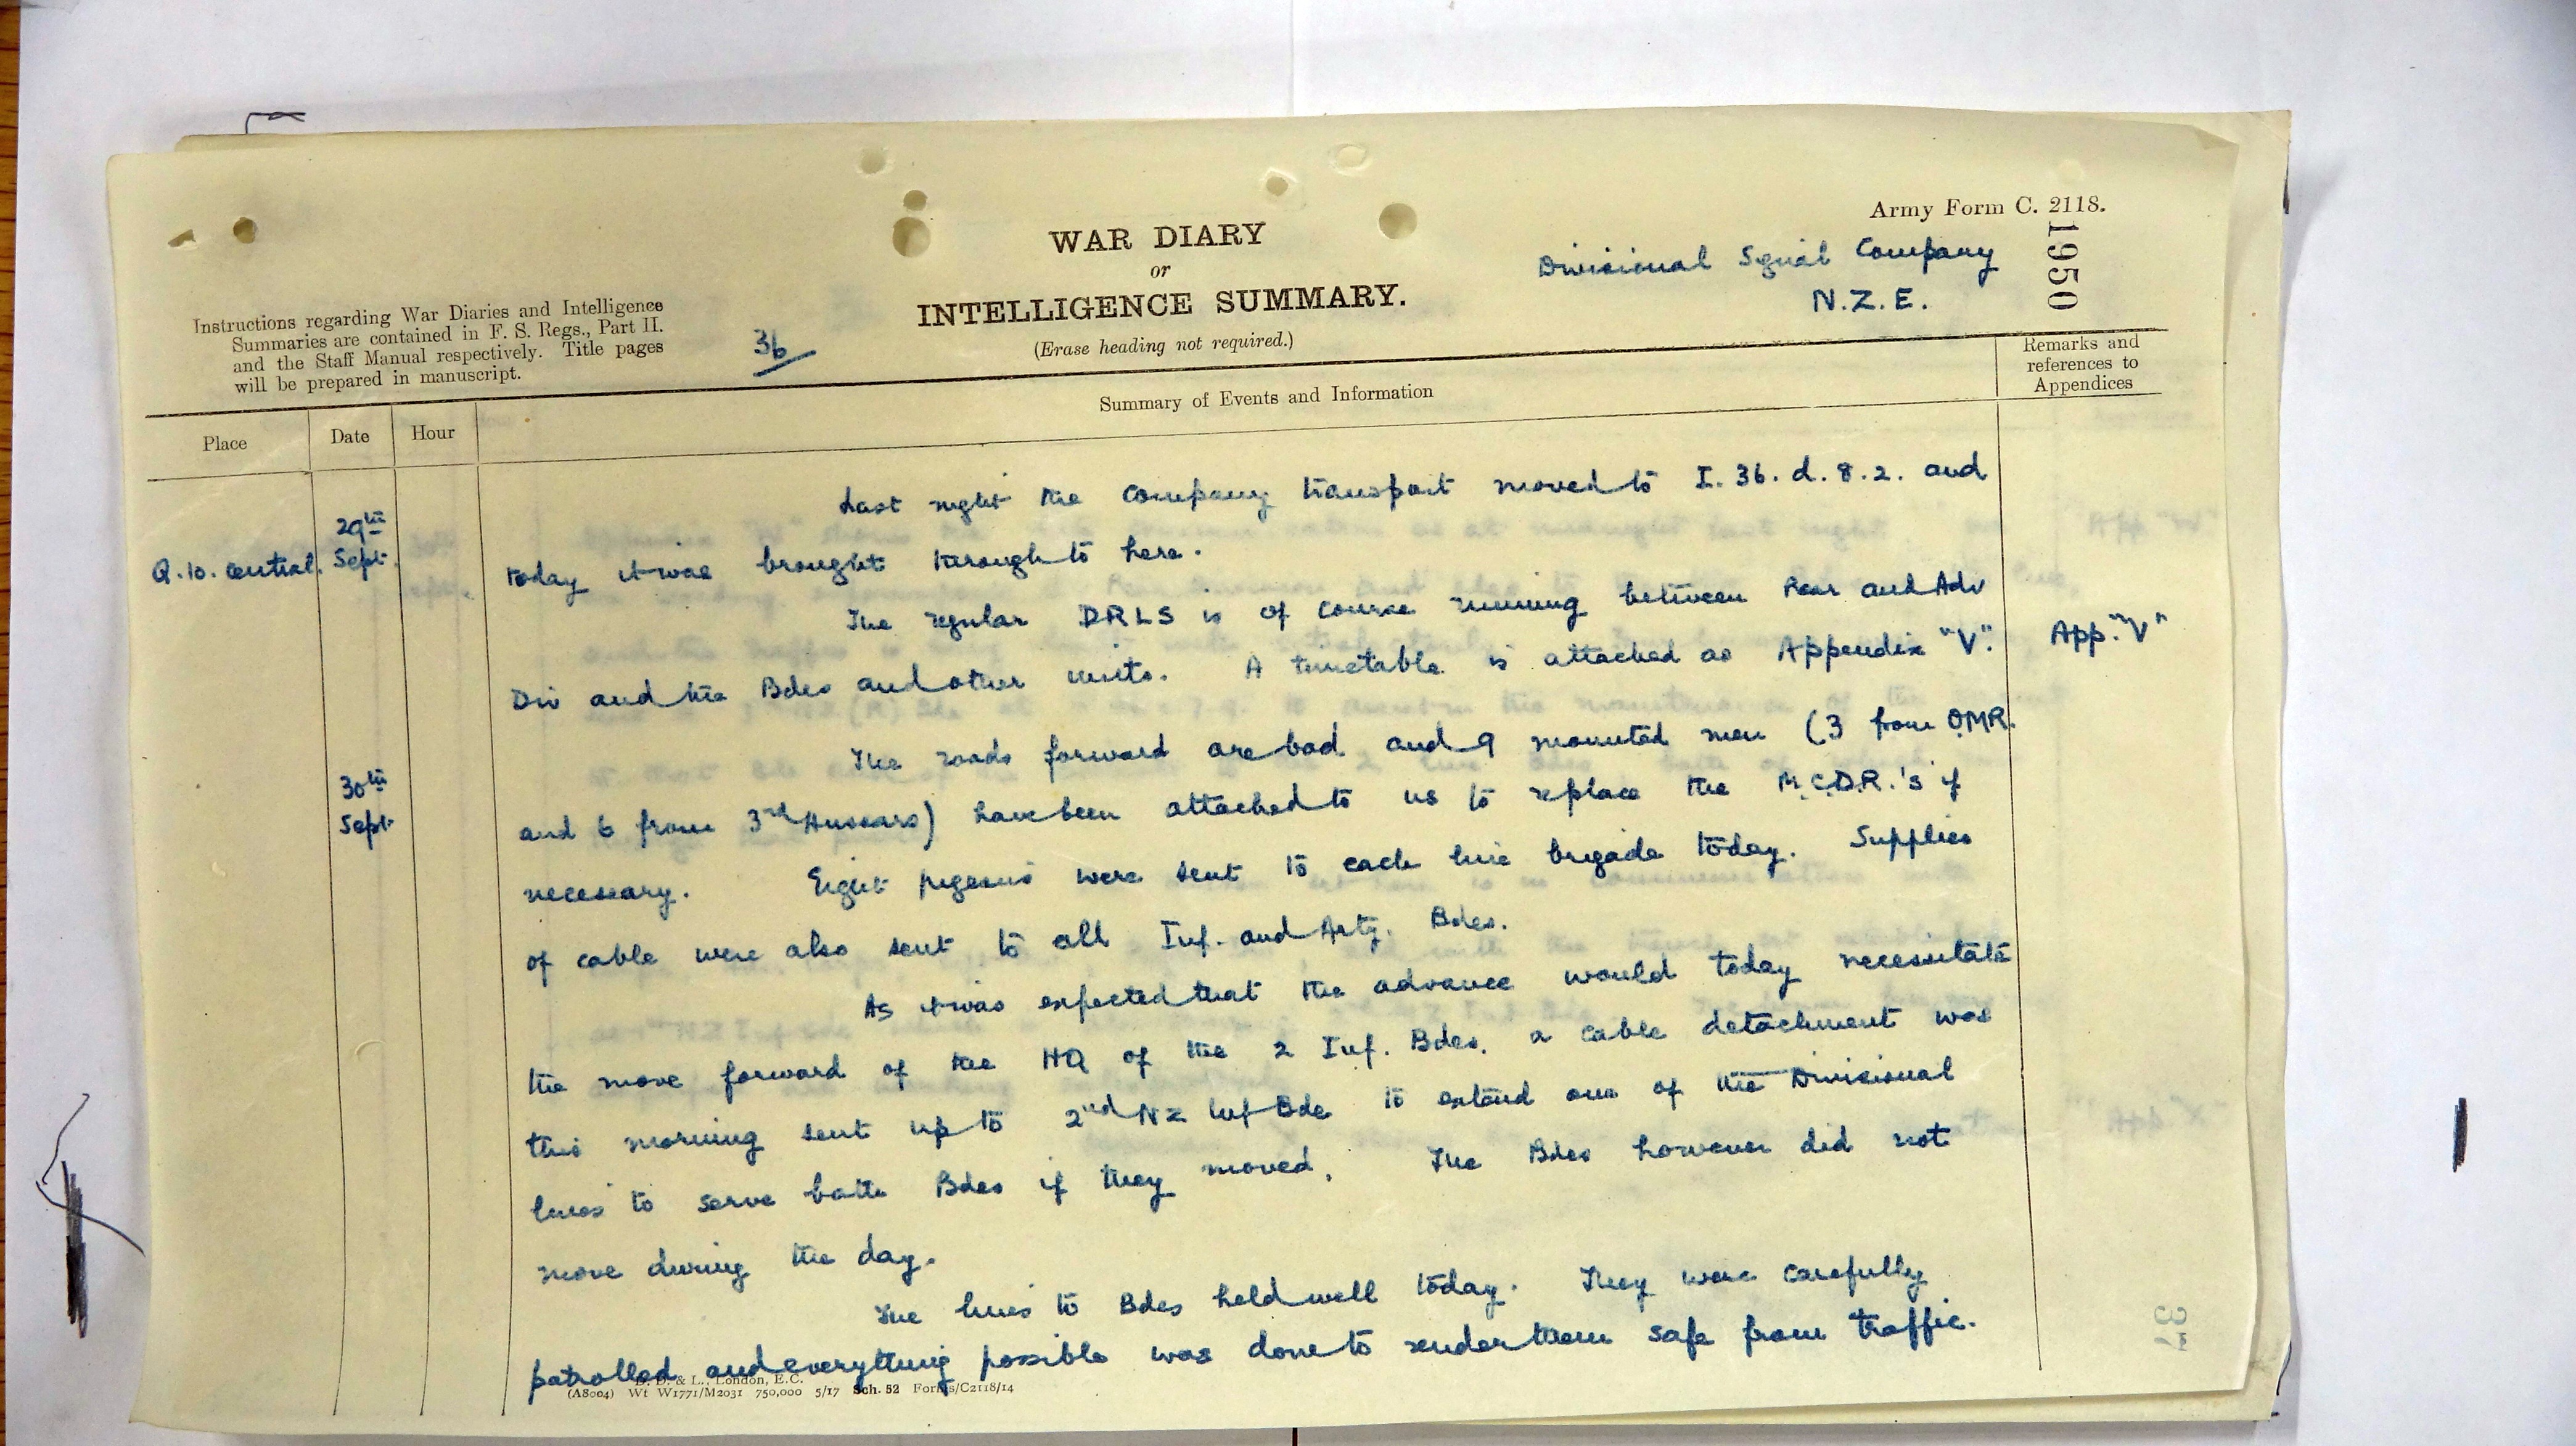 Army Form C. 2118.
WAR DIARY
or
INTELLIGENCE SUMMARY.
(Erase heading not required.)
Divisional Signal Company
N.Z.E.
1950
Instructions regarding War Diaries and Intelligence
Summaries are contained in F. S. Regs., Part II.
and the Staff Manual respectively. Title pages
will be prepared in manuscript.
36
Place
Date
Hour
Summary of Events and Information
Remarks and
references to
Appendices
Q.10. central.
29th
Sept.
Last night the Company transport moved to I. 36. d. 8. 2. and
today it was brought through to here.
The regular DRLS is of course running between Rear and Adv
Div and the Bdes and other units. A timetable is attached as Appendix "V".
App. "V"
30th
Sept
The roads forward are bad and 9 mounted men (3 from OMR.
and 6 from 3rd Hussars) have been attached to us to replace the M.C.D.R.'s if
necessary. Eight pigeons were sent to each line brigade today. Supplies
of cable were also sent to all Inf. and Arty. Bdes.
As it was expected that the advance would today necessitate
the move forward of the HQ of the 2 Inf. Bdes. a cable detachment was
this morning sent up to 2nd NZ Inf Bde to extend one of the Divisional
lines to serve both Bdes if they moved. The Bdes however did not
move during the day.
The lines to Bdes held well today. They were carefully
patrolled and everything possible was done to render them safe from traffic.
D. D. & L., London, E.C.
(A8004) Wt W1771/M2031 750,000 5/17 Sch. 52 Forms/C2118/14